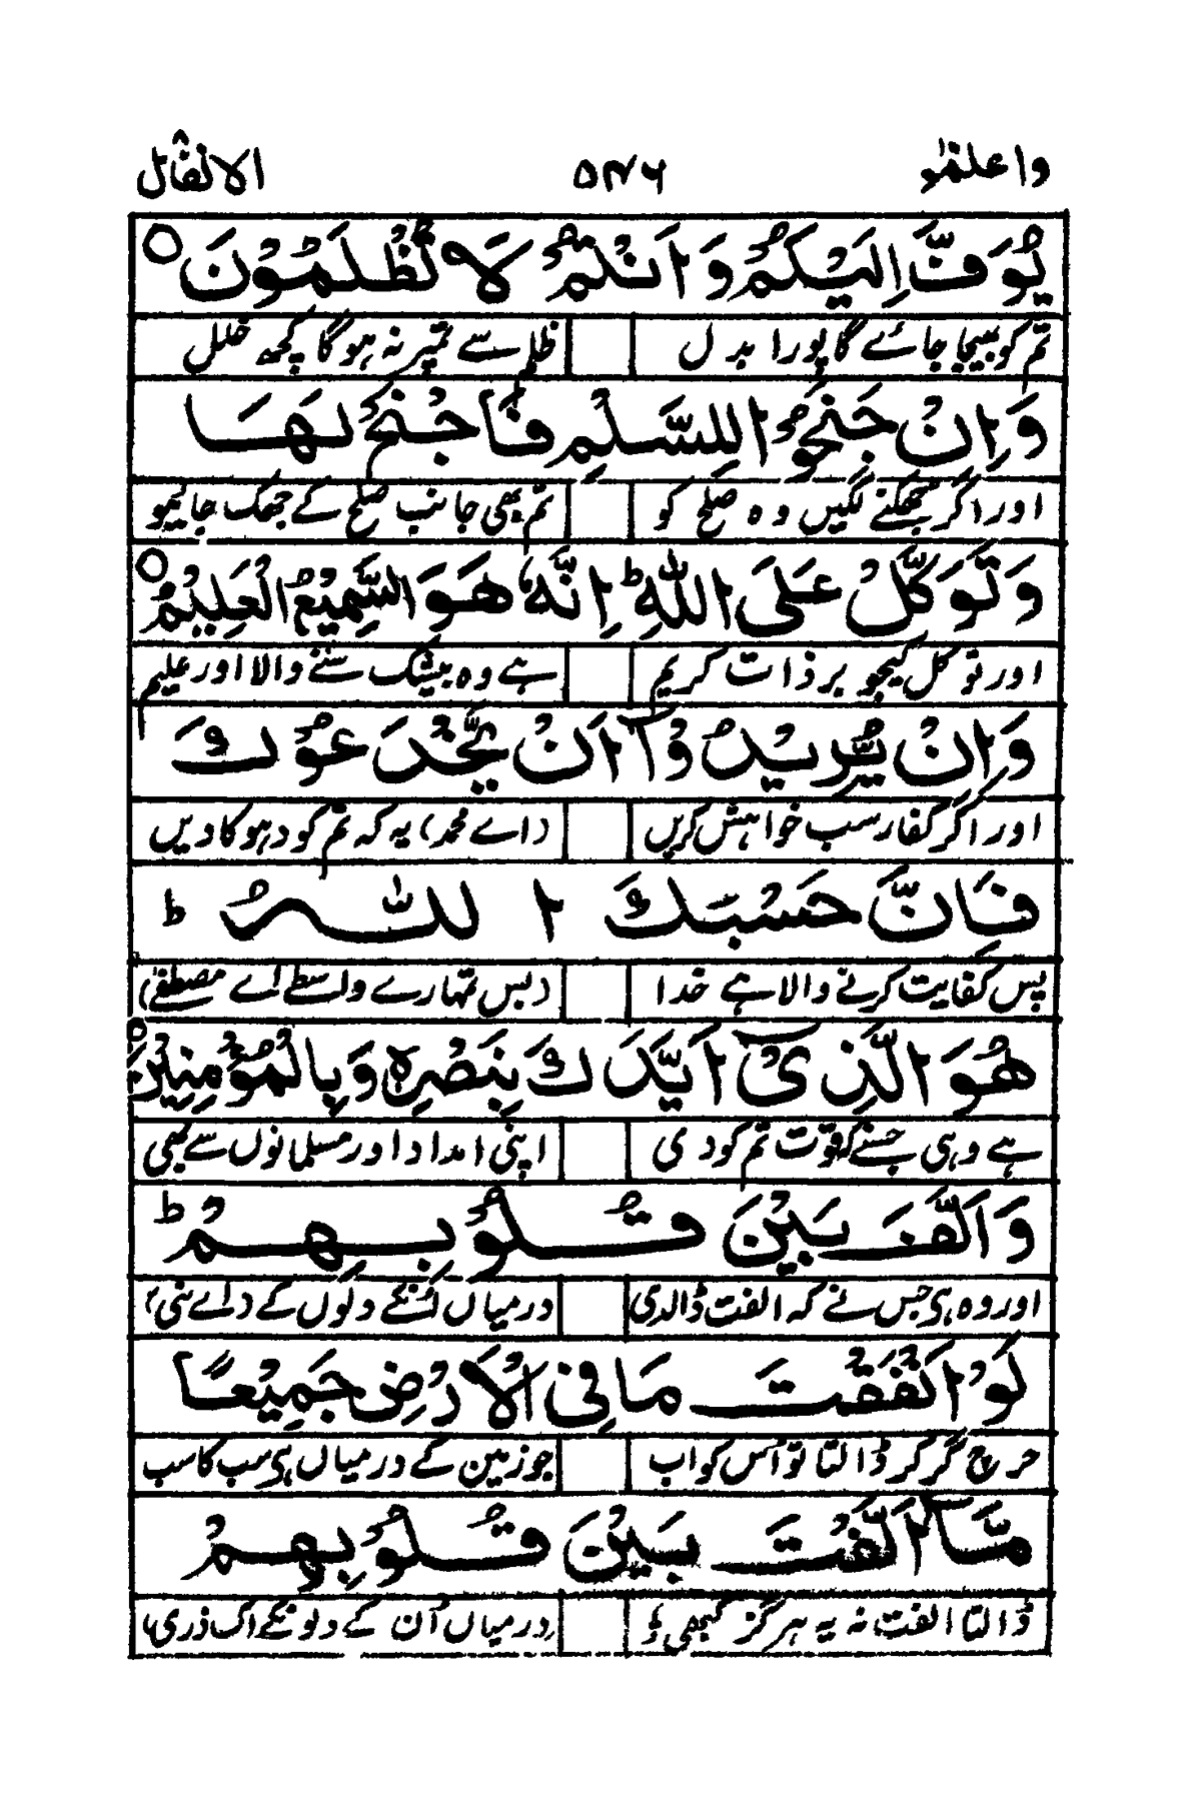 واعلموٓا ۵۴۶ الانفال
يُوَفَّ اِلَيْكُمْ وَاَنْتُمْ لَا تُظْلَمُوْنَ ○
تم کو بھیجا جائے گا پورا بدل ظلم سے تمپر نہ ہو گا کچھ خلل
وَاِنْ جَنَحُوْا لِلسَّلْمِ فَاجْنَحْ لَهَا
اور اگر جھکنے لگیں وہ صلح کو تم بھی جانب صلح کے جھک جائیو
وَتَوَكَّلْ عَلَى اللّٰهِ ط اِنَّهٗ هُوَ السَّمِيْعُ الْعَلِيْمُ ○
اور توکل کیجو بر ذات کریم ہے وہ بیشک سننے والا اور علیم
وَاِنْ يُّرِيْدُوْٓا اَنْ يَّخْدَعُوْكَ
اور اگر کفار سب خواہش کریں (اے محمد) یہ کہ تم کو دہوکا دیں
فَاِنَّ حَسْبَكَ اللّٰهُ ط
پس کفایت کرنے والا ہے خدا (بس تمہارے واسطے اے مصطفےٰ)
هُوَ الَّذِيْٓ اَيَّدَكَ بِنَصْرِهٖ وَبِالْمُؤْمِنِيْنَ ○
ہے وہی جسنے کہ قوت تم کو دی اپنی امداد اور مسلمانوں سے بھی
وَاَلَّفَ بَيْنَ قُلُوْبِهِمْ ط
اور وہ ہی جس نے کہ الفت ڈالدی درمیاں انکے دلوں کے (اے نبی)
لَوْ اَنْفَقْتَ مَا فِى الْاَرْضِ جَمِيْعًا
خرچ گر کر ڈالتا تو اُس کو اب جو زمین کے درمیاں ہی سب کا سب
مَّآ اَلَّفْتَ بَيْنَ قُلُوْبِهِمْ
ڈالتا الفت نہ یہ ہرگز کبھی درمیاں اُن کے دلونکے اک ذری